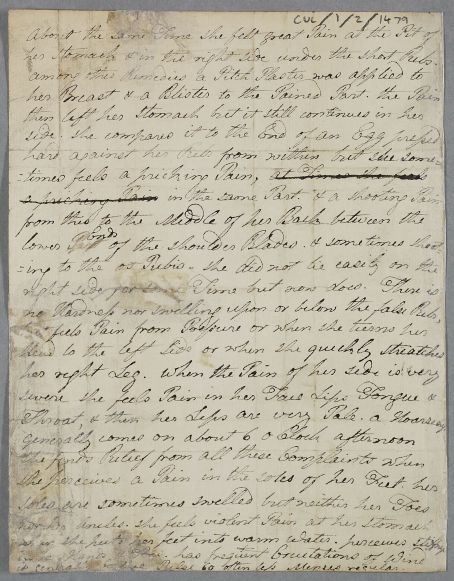 CUL/1/2/1479
about the same time she felt great Pain at the Pit of
her Stomach & in the right side under the short Ribs.
among other Remedies a Pitch Plaster was applied to
her Breast & a Blister to the Pained Part. the Pain
then left her Stomach but it still continues in her
side. she compares it to the End of an Egg pressed
hard against her Ribs from within but she some=
=times feels a pricking Pain, at times she feels
a pricking Pain in the same Part & a shooting Pain
from this to the Middle of her Back between the
lower Ends of the shoulder Blades. & sometimes shoot
=ing to the os Pubis. she did not lie easily on the
right side for some Time but now does. There is
no Hardness nor swelling upon or below the false Ribs,
feels Pain from Pressure or when she turns her
Head to the left Side or when she quickly stretches
her right Leg. when the Pain of her side is very
severe she feels Pain in her Face Lips Tongue &
Throat, & then her Lips are very Pale. a Hoarseness
generally comes on about 6 o Clock afternoon
she finds Relief from all these Complaints when
she perceives a Pain in the soles of her Feet. her
soles are sometimes swelled but neither her Toes
nor her ancles. she feels violent Pain at her Stomach
if she puts her feet into warm Water. perceives
has frequent Eructations of Wine
Pulse 60 often less Menses regular.